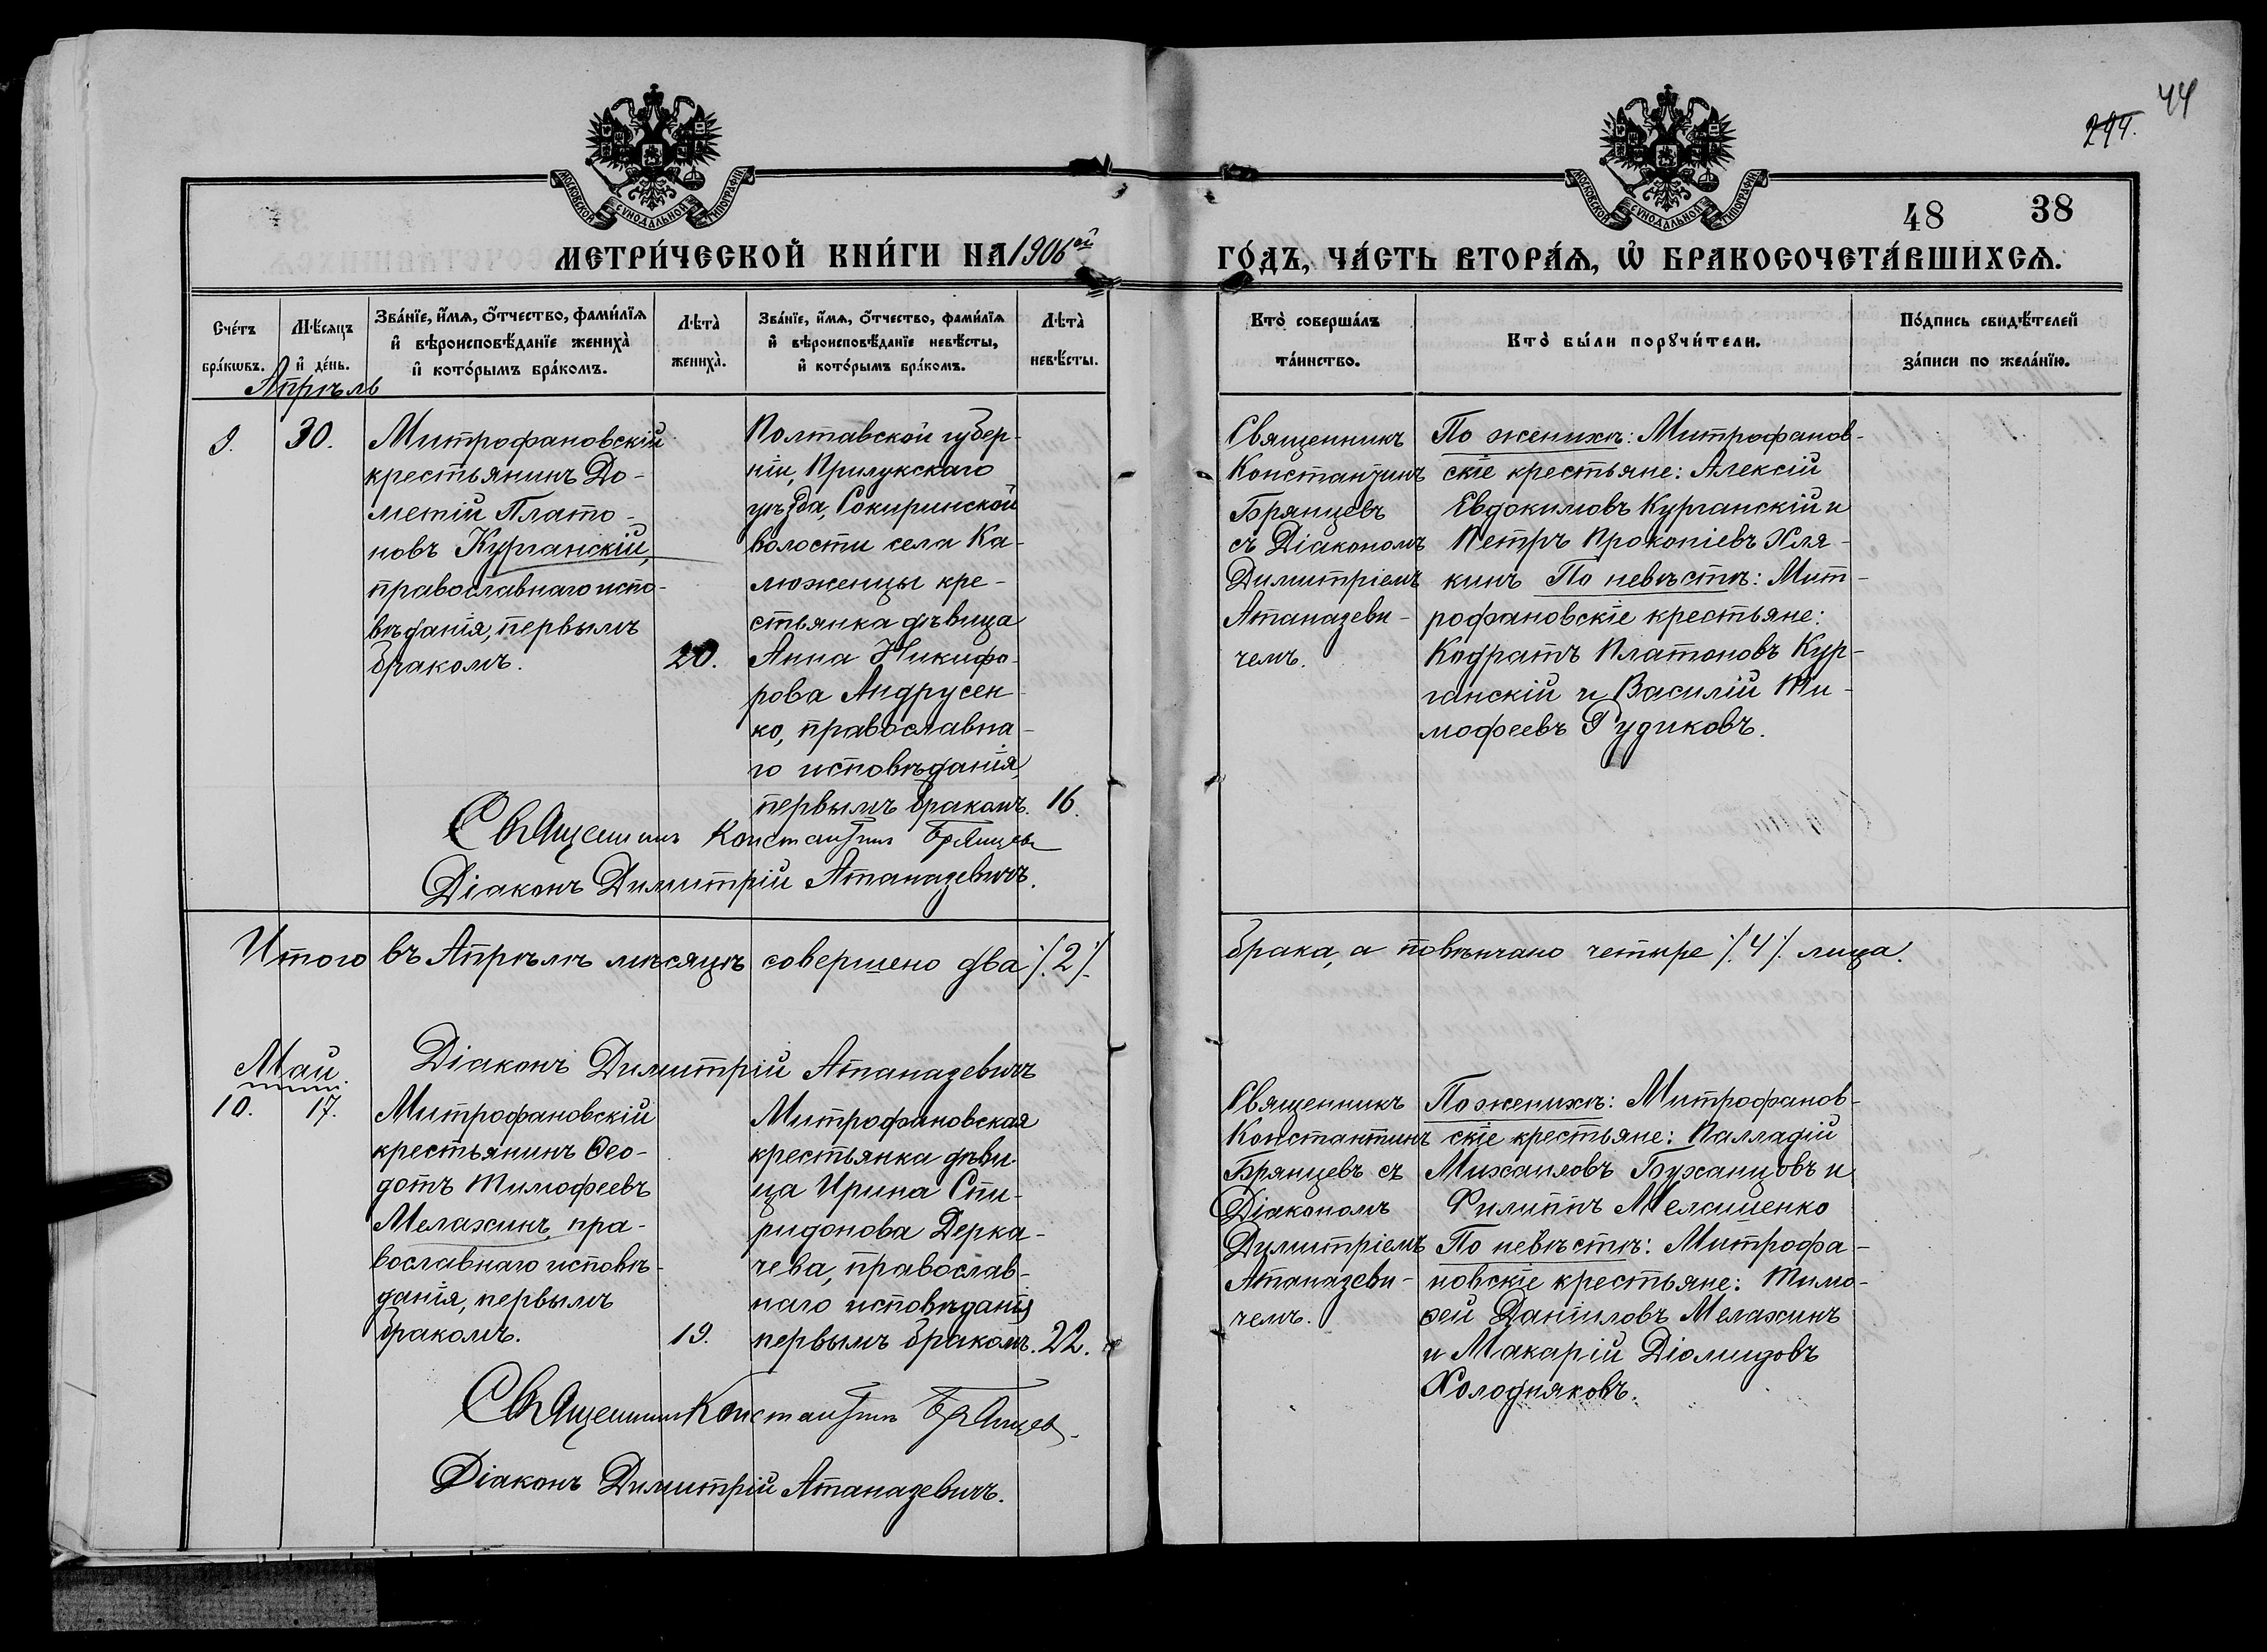 44
294.
МОСКОВСКОЙ СѴНОДАЛЬНОЙ ТИПОГРАФІИ
МОСКОВСКОЙ СѴНОДАЛЬНОЙ ТИПОГРАФІИ
48 38
МЕТРИ́ЧЕСКОЙ КНИ́ГИ НА 1906ой
ГО́ДЪ, ЧА́СТЬ ВТОРА́Ѧ, Ѡ҆ БРАКОСОЧЕТА́ВШИХСѦ.
Сче́тъ
бра́кѡвъ.
Мѣ́сяцъ
и҆ де́нь.
Зва́нїе, и҆́мѧ, ѻ҆́тчество, фами́лїѧ
и҆ вѣроисповѣ́данїе жениха̀
и҆ кото́рымъ бра́комъ.
Лѣта̀
жениха̀.
Зва́нїе, и҆́мѧ, ѻ҆́тчество, фами́лїѧ
и҆ вѣроисповѣ́данїе невѣ́сты,
и҆ кото́рымъ бра́комъ.
Лѣта̀
невѣ́сты.
Кто̀ соверша́лъ
та́инство.
Кто̀ бы́ли порꙋчи́тели.
По́дпись свидѣ́телей
за́писи по жела́нїю.
Апрѣль
9.
30.
Митрофановскій
крестьянинъ До-
метій Плато-
новъ Курганскій,
православнаго испо-
вѣданія, первымъ
бракомъ.
20.
Полтавской губер-
ніи, Прилукскаго
уѣзда, Сокиринской
волости села Ка-
люженцы кре-
стьянка дѣвица
Анна Никифо-
рова Андрусен-
ко, православна-
го исповѣданія,
первымъ бракомъ.
16.
Священникъ
Константинъ
Брянцевъ
съ Діакономъ
Димитріемъ
Атаназеви-
чемъ.
По женихѣ: Митрофанов-
скіе крестьяне: Алексій
Евдокимовъ Курганскій и
Петръ Прокопіевъ Хля-
кинъ По невѣстѣ: Мит-
рофановскіе крестьяне:
Кодратъ Платоновъ Кур-
ганскій и Василій Ти-
мофеевъ Рудиковъ.
Священникъ Константинъ Брянцевъ
Діаконъ Димитрій Атаназевичъ.
Итого въ Апрѣлѣ мѣсяцѣ совершено два /.2./
брака, а повѣнчано четыре /.4./. лица.
Діаконъ Димитрій Атаназевичъ
Май.
10.
17.
Митрофановскій
крестьянинъ Ѳео-
дотъ Тимофеевъ
Мелахинъ, пра-
вославнаго исповѣ-
данія, первымъ
бракомъ.
19.
Митрофановская
крестьянка дѣви-
ца Ирина Спи-
ридонова Дерка-
чева, православ-
наго исповѣданія
первымъ бракомъ.
22.
Священникъ
Константинъ
Брянцевъ съ
Діакономъ
Димитріемъ
Атаназеви-
чемъ.
По женихѣ: Митрофанов-
скіе крестьяне: Палладій
Михаиловъ Буханцовъ и
Филиппъ Мелашенко
По невѣстѣ: Митрофа-
новскіе крестьяне: Тимо-
фей Даніиловъ Мелахинъ
и Макарій Діомидовъ
Холодняковъ.
Священникъ Константинъ Брянцевъ
Діаконъ Димитрій Атаназевичъ.